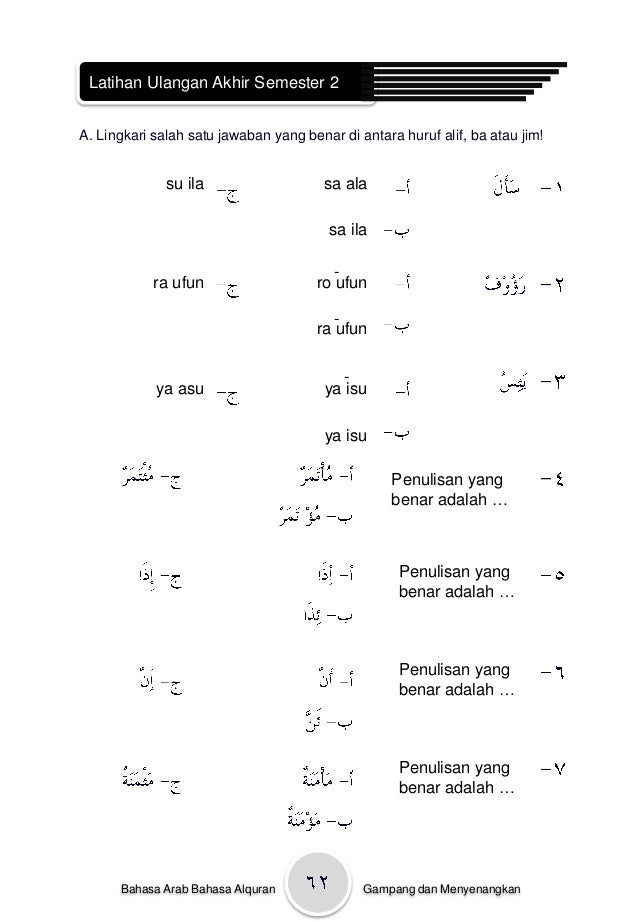 Latihan Ulangan Akhir Semester 2
A. Lingkari salah satu jawaban yang benar di antara huruf alif, ba atau jim!
١ – سَأَلَ أ– sa ala ج– su ila
ب– sa ila
٢ – رَؤُوْفٌ أ– ro ūfun ج– ra ufun
ب– ra ūfun
٣ – يَئِسُ أ– ya īsu ج– ya asu
ب– ya isu
٤ – Penulisan yang أ– مُأْتَمَرٌ ج– مُئْتَمَرٌ
benar adalah … ب– مُؤْتَمَرٌ
٥ – Penulisan yang أ– أِذَا ج– إِذَا
benar adalah … ب– ئِذَا
٦ – Penulisan yang أ– أَنٌ ج– إَنٌ
benar adalah … ب– ئَنَّ
٧ – Penulisan yang أ– مَأْمَنَةٌ ج– مَئْمَنَةٌ
benar adalah … ب– مَؤْمَنَةٌ
Bahasa Arab Bahasa Alquran ٦٢ Gampang dan Menyenangkan